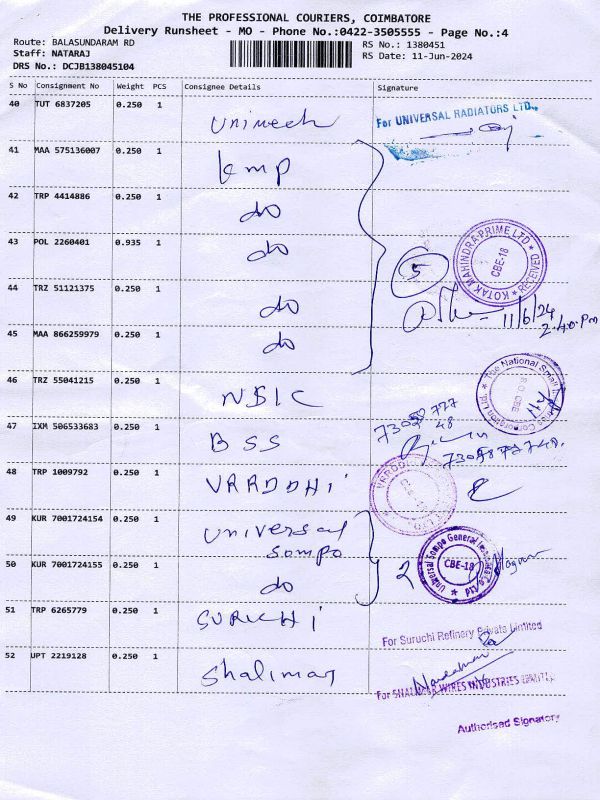 THE PROFESSIONAL COURIERS, COIMBATORE
Delivery Runsheet - MO - Phone No.:0422-3505555 - Page No.:4
Route: BALASUNDARAM RD
RS No.: 1380451
Staff: NATARAJ
RS Date: 11-Jun-2024
DRS No.: DCJB138045104
S No Consignment No Weight PCS Consignee Details Signature
40 TUT 6837205 0.250 1 Unimech For UNIVERSAL RADIATORS LTD.,
41 MAA 575136007 0.250 1 kmp
42 TRP 4414886 0.250 1 do
43 POL 2260401 0.935 1 do 5 KOTAK MAHINDRA PRIME LTD RECEIVED CBE-18
44 TRZ 51121375 0.250 1 do 11/6/24
2.40.Pm
45 MAA 866259979 0.250 1 do
46 TRZ 55041215 0.250 1 NSIC The National Small
47 IXM 506533683 0.250 1 BSS
48 TRP 1009792 0.250 1 VRRDDHI
49 KUR 7001724154 0.250 1 Universal
Sompo
50 KUR 7001724155 0.250 1 do 2 Universal Sompo General Insurance Co Ltd CBE-18
51 TRP 6265779 0.250 1 SURUCHI For Suruchi Refinery Private Limited
52 UPT 2219128 0.250 1 Shalimar
For SHALIMAR WIRES INDUSTRIES LIMITED
Authorised Signatory